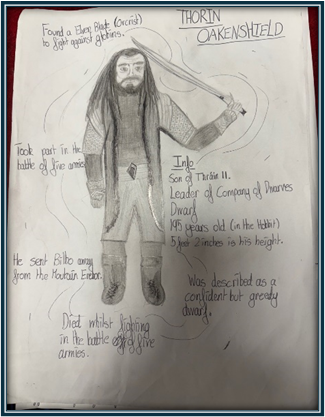 THORIN
OAKENSHIELD
Found a Elven Blade (Orcrist)
to fight against goblins.
Took part in the
battle of five armies
Info
Son of Thráin II.
Leader of Company of Dwarves
Dwarf
195 years old (in the Hobbit)
5 feet 2 inches is his height.
He sent Bilbo away
from the Moutain Erebor.
Was described as a
confident but greedy
dwarf.
Died whilst fighting
in the battle of five
armies.